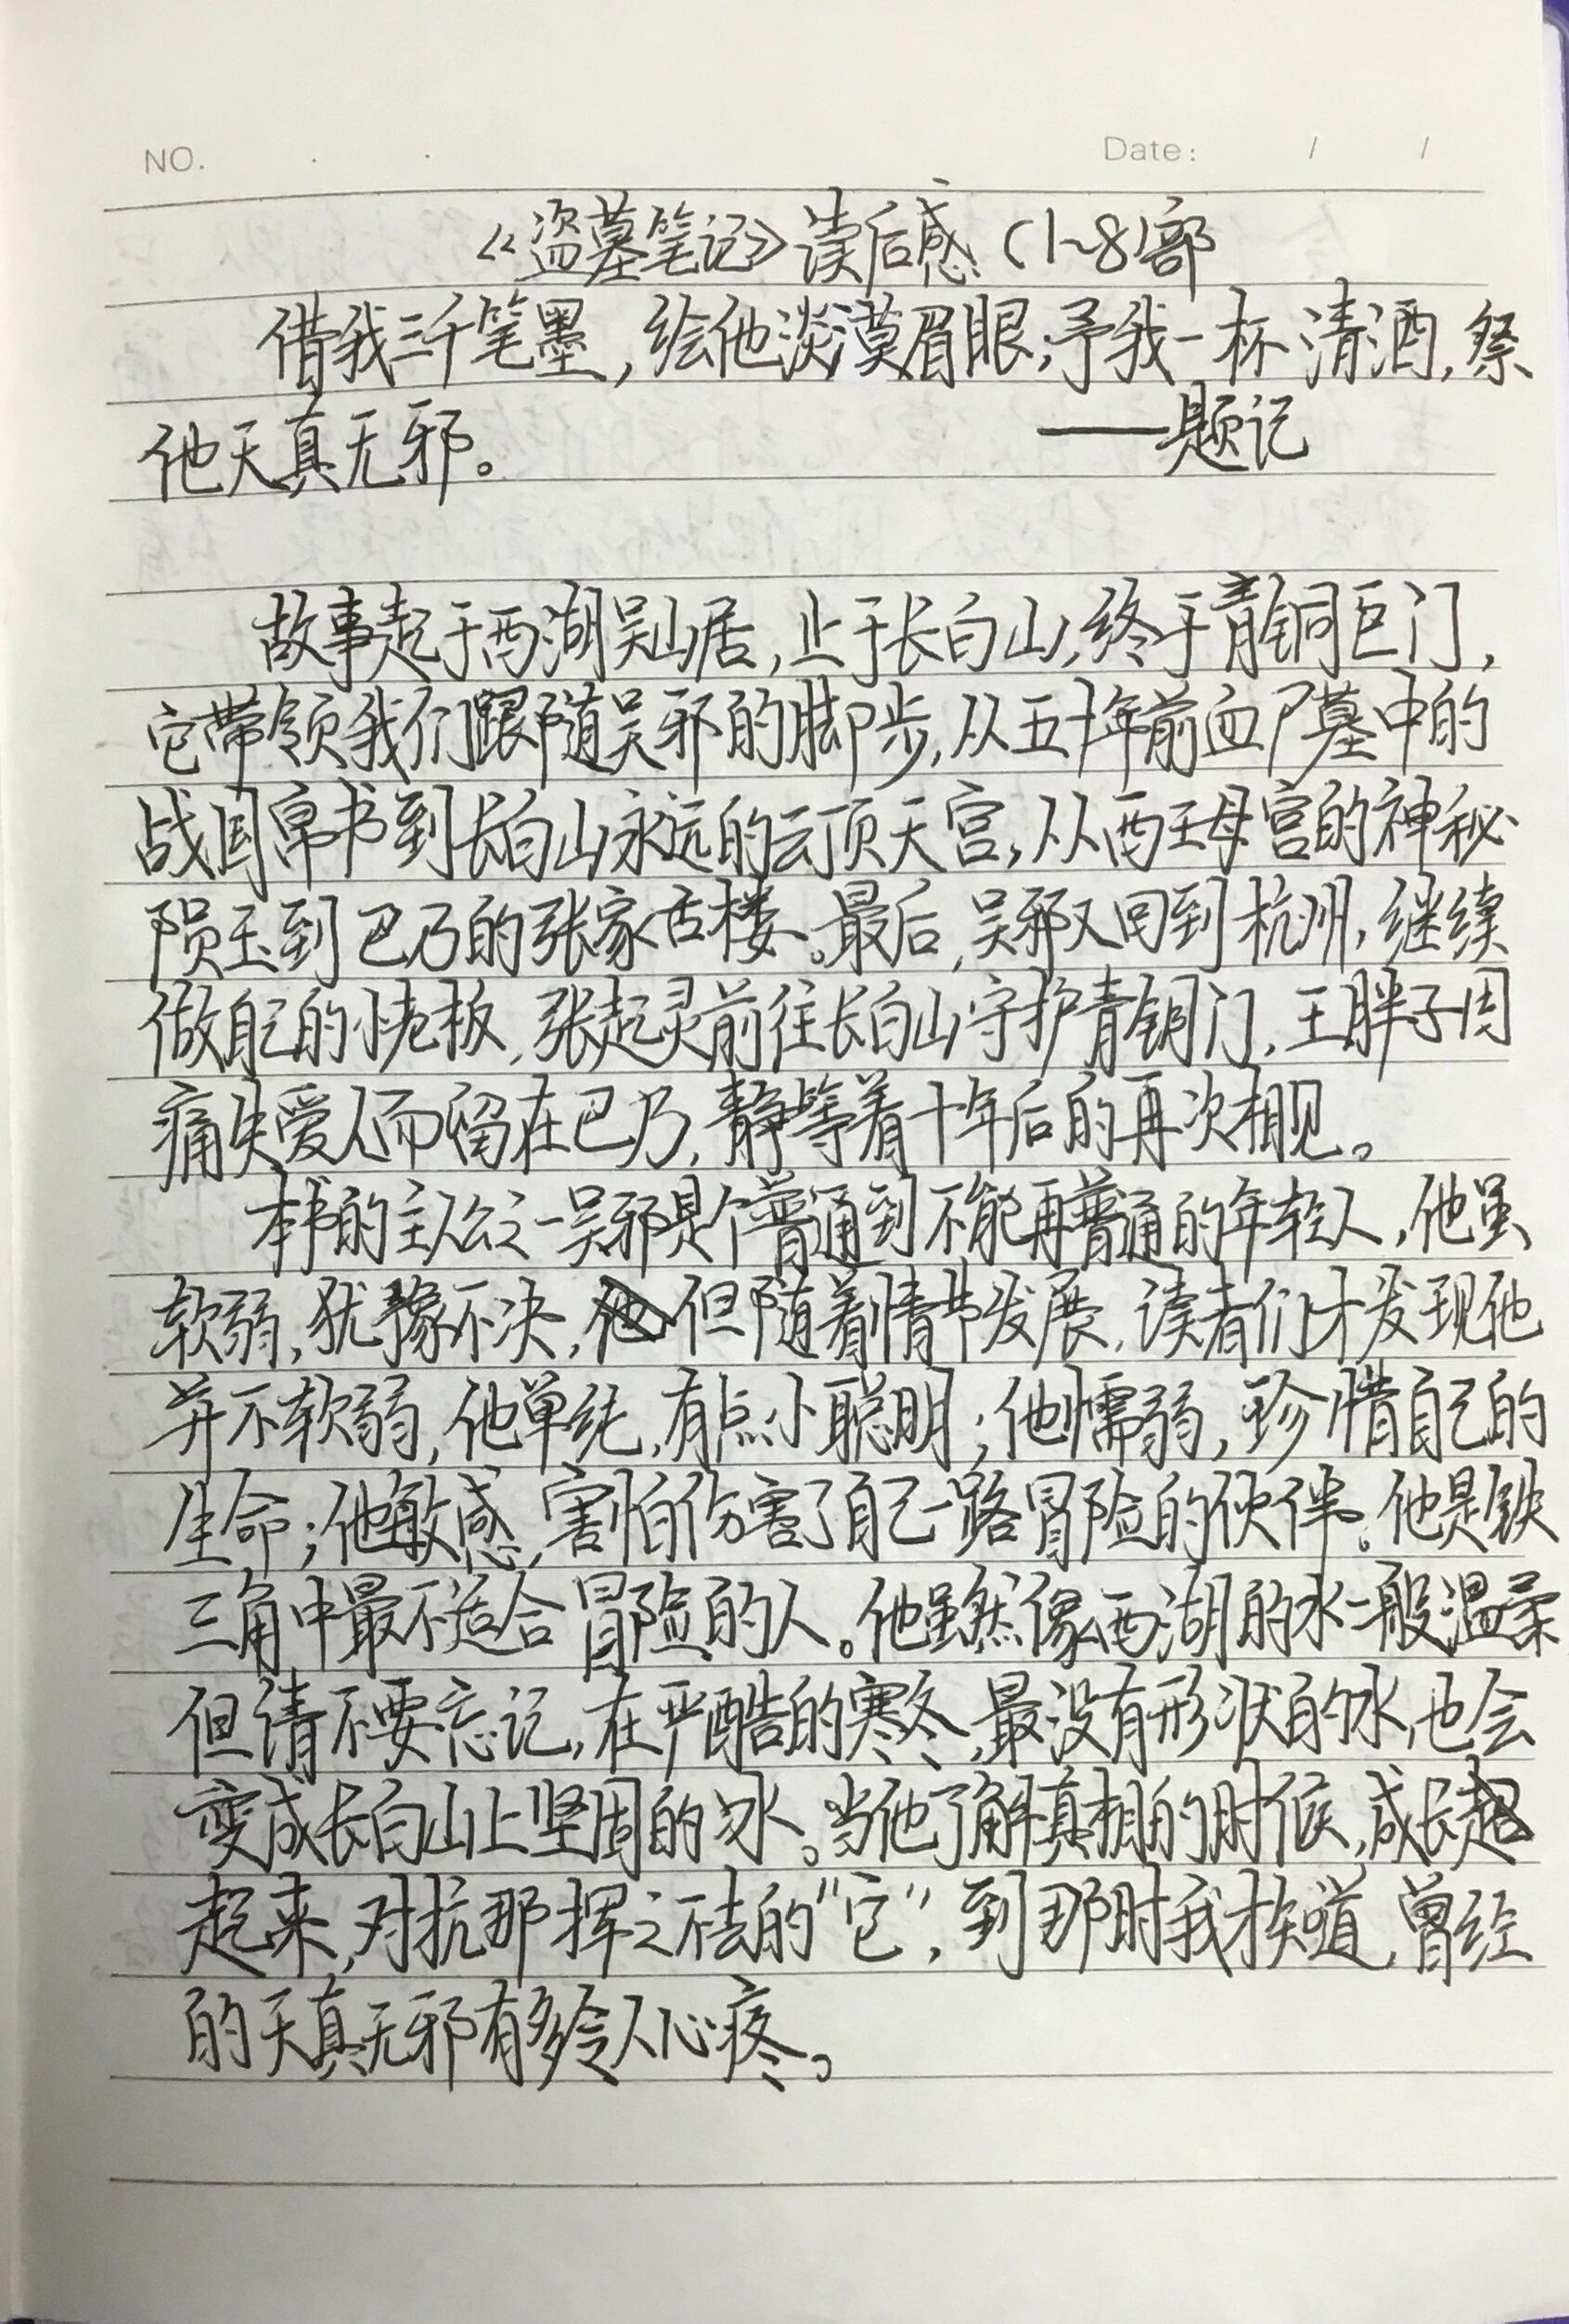 NO. . .
Date: / /
《盗墓笔记》读后感（1~8）部
借我三千笔墨,绘他淡漠眉眼;予我一杯清酒,祭
他天真无邪。 ——题记
故事起于西湖吴山居,止于长白山,终于青铜巨门,
它带领我们跟随吴邪的脚步,从五十年前血尸墓中的
战国帛书到长白山永远的云顶天宫,从西王母宫的神秘
陨玉到巴乃的张家古楼。最后,吴邪又回到杭州,继续
做自己的小老板,张起灵前往长白山守护青铜门,王胖子因
痛失爱人而留在巴乃,静等着十年后的再次相见。
本书的主人公之一吴邪是个普通到不能再普通的年轻人,他虽
软弱,犹豫不决,但随着情节发展,读者们才发现他
并不软弱,他单纯,有点小聪明;他懦弱,珍惜自己的
生命;他敏感,害怕伤害了自己一路冒险的伙伴。他是铁
三角中最不适合冒险的人。他虽然像西湖的水一般温柔
但请不要忘记,在严酷的寒冬,最没有形状的水,也会
变成长白山上坚固的冰。当他了解真相的时候,成长
起来,对抗那挥之不去的“它”,到那时我才知道,曾经
的天真无邪有多令人心疼。